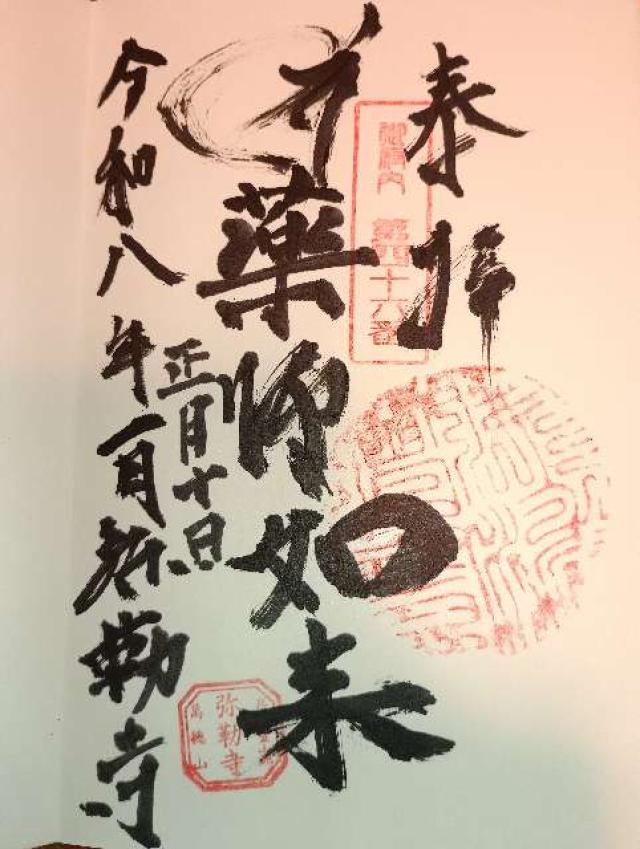 奉拝
第四十六番
薬師如来
正月十日
令和八年一月弥勒寺
弥勒寺